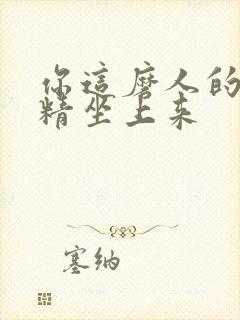 你這磨人的
精坐上来
塞纳